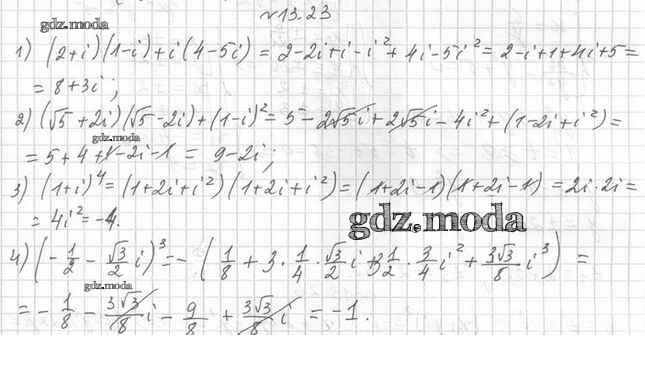 №13.23
gdz.moda
1) (2+i)(1-i)+i(4-5i) = 2-2i+i-i²+4i-5i² = 2-i+1+4i+5 =
= 8+3i;
2) (√5+2i)(√5-2i)+(1-i)² = 5-2√5i+2√5i-4i²+(1-2i+i²) =
gdz.moda
= 5+4+1-2i-1 = 9-2i;
3) (1+i)⁴ = (1+2i+i²)(1+2i+i²) = (1+2i-1)(1+2i-1) = 2i·2i =
= 4i² = -4.
gdz.moda
4) (-1/2 - √3/2 i)³ = -(1/8 + 3·1/4·√3/2 i + 3·1/2·3/4 i² + 3√3/8 i³) =
gdz.moda
= -1/8 - 3√3/8 i - 9/8 + 3√3/8 i = -1.